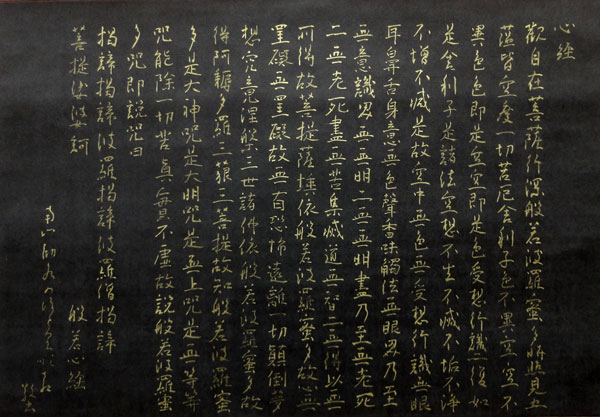 心經
觀自在菩薩行深般若波羅蜜多時照見五
蘊皆空度一切苦厄舍利子色不異空空不
異色色即是空空即是色受想行識亦復如
是舍利子是諸法空想不生不滅不垢不淨
不增不減是故空中無色無受想行識無眼
耳鼻舌身意無色聲香味觸法無眼界乃至
無意識界無無明亦無無明盡乃至無老死
亦無老死盡無苦集滅道無智亦無得以無
所得故菩提薩埵依般若波羅蜜多故心無
罣礙無罣礙故無有恐怖遠離一切顛倒夢
想究竟涅槃三世諸佛依般若波羅蜜多故
得阿耨多羅三藐三菩提故知般若波羅蜜
多是大神咒是大明咒是無上咒是無等等
咒能除一切苦真實不虛故說般若波羅蜜
多咒即說咒曰
揭諦揭諦波羅揭諦波羅僧揭諦
菩提娑婆訶
般若心經